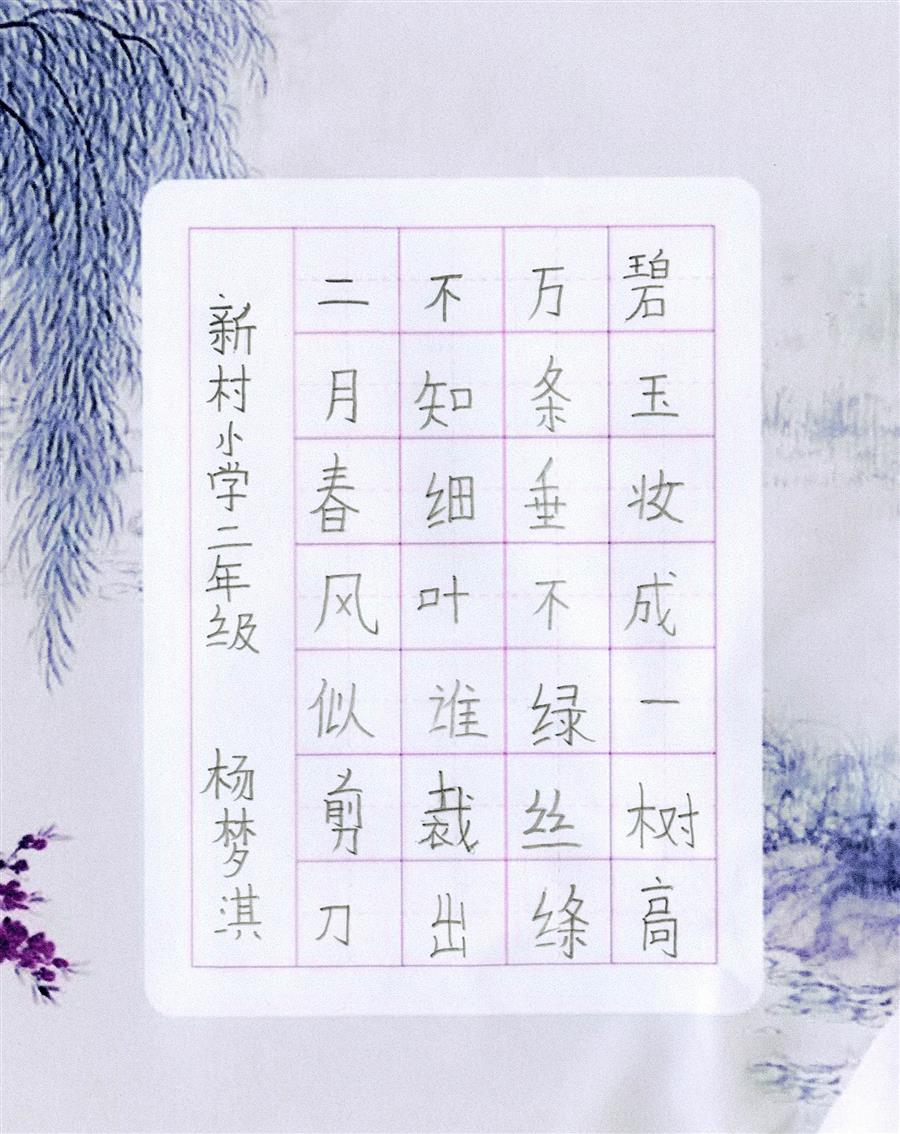 碧玉妆成一树高
万条垂不绿丝绦
不知细叶谁裁出
二月春风似剪刀
新村小学二年级 杨梦淇